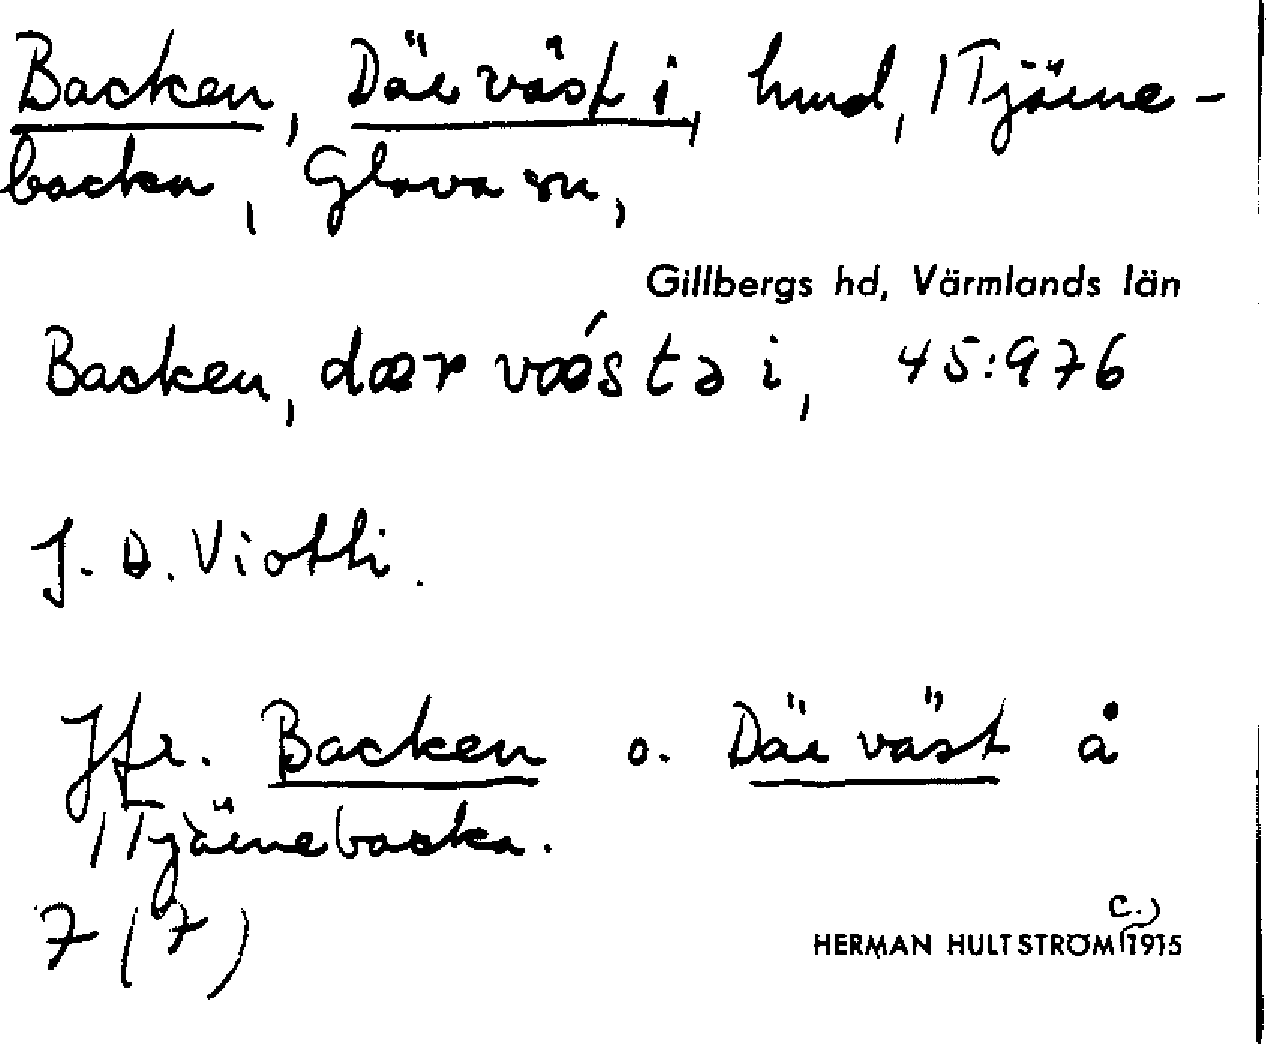 Backen, Där väst i, hmd, 1 Tjärne-
backa, Glava sn,
Gillbergs hd, Värmlands län
Backen, dær vǽstə i, 45:976
J. D. Viotti.
Jfr. Backen o. Där väst å
1 Tjärnebacka.
7 (7)
HERMAN HULTSTRÖM c. 1915